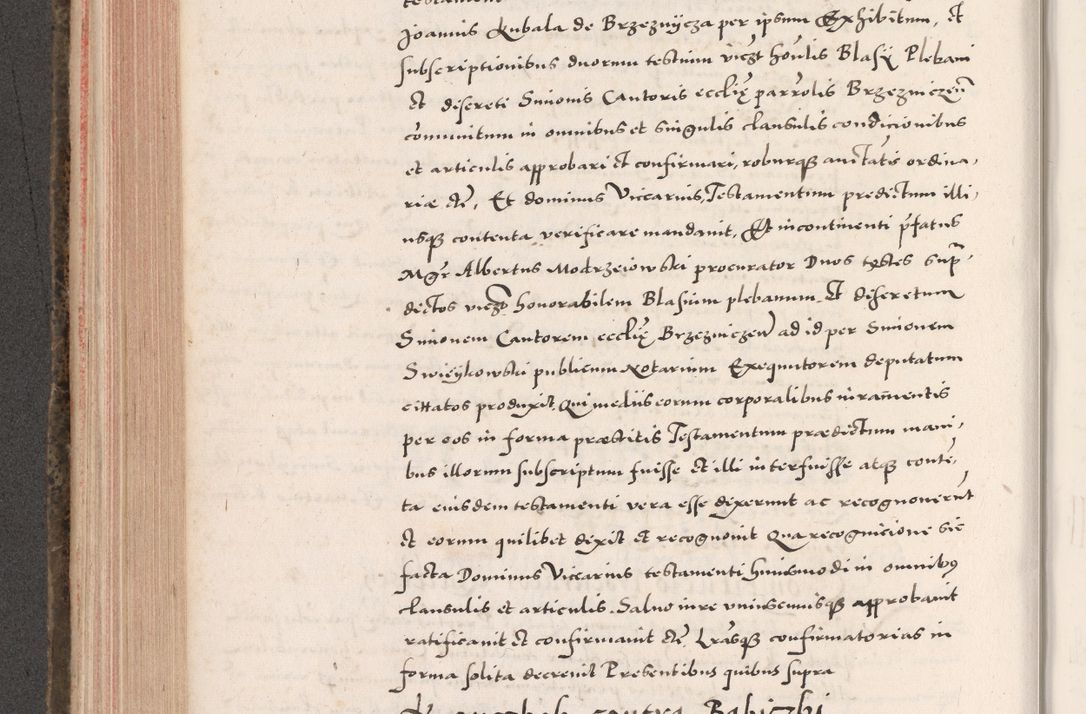 Joannis Kubala de Brzeznÿcza per ipsum Exhibitum, Et
subscriptionibus duorum testium vicz hor̃ulis Blasÿ Plebani
et discreti Simonis Cantoris eccl̃ię parr̃olis Brzezniczeñ
com̃unitum in omnibus et singulis clausulis condicionibus
et articulis approbari et confirmari, roburq; auctãtis ordina-
riæ etc̃, Et dominus Viccarius, Testamentum predictum illi-
usq; contenta verificare mandauit, Et incontinenti p̃fatus
Mgr̃ Albertus Modrzeiowski procurator Duos testes sup̃-
dictos viczt honorabilem Blasium plebanum et discretum
Simonem Cantorem eccl̃ię Brzezniczeñ ad id per Simonem
Swieÿkowski publicum Notarium Exequutorem deputatum
cittatos produxit. Qui mediis eorum corporalibus iuram̃entis
per eos in forma præstitis Testamentum prædictum mani-
bus illorum subscriptum fuisse et illi interfuisse atq; conte-
ta eiusdem testamenti vera esse dixerunt ac recognouerunt
et eorum quilibet dixit et recognouit Qua recognicione sic
facta Dominus Viccarius testamenti huiusmodi in omnibus
clausulis et articulis. Saluo iure vniuscuiusq; approbauit
ratificauit et confirmauit etc̃. Lr̃asq; confirmatorias in
forma solita decreuit Presentibus quibus supra
contra Babiczki